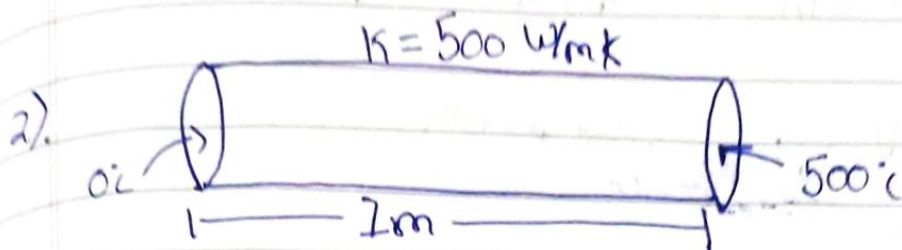 K = 500 W/mk
2).
0°c
500°c
1m